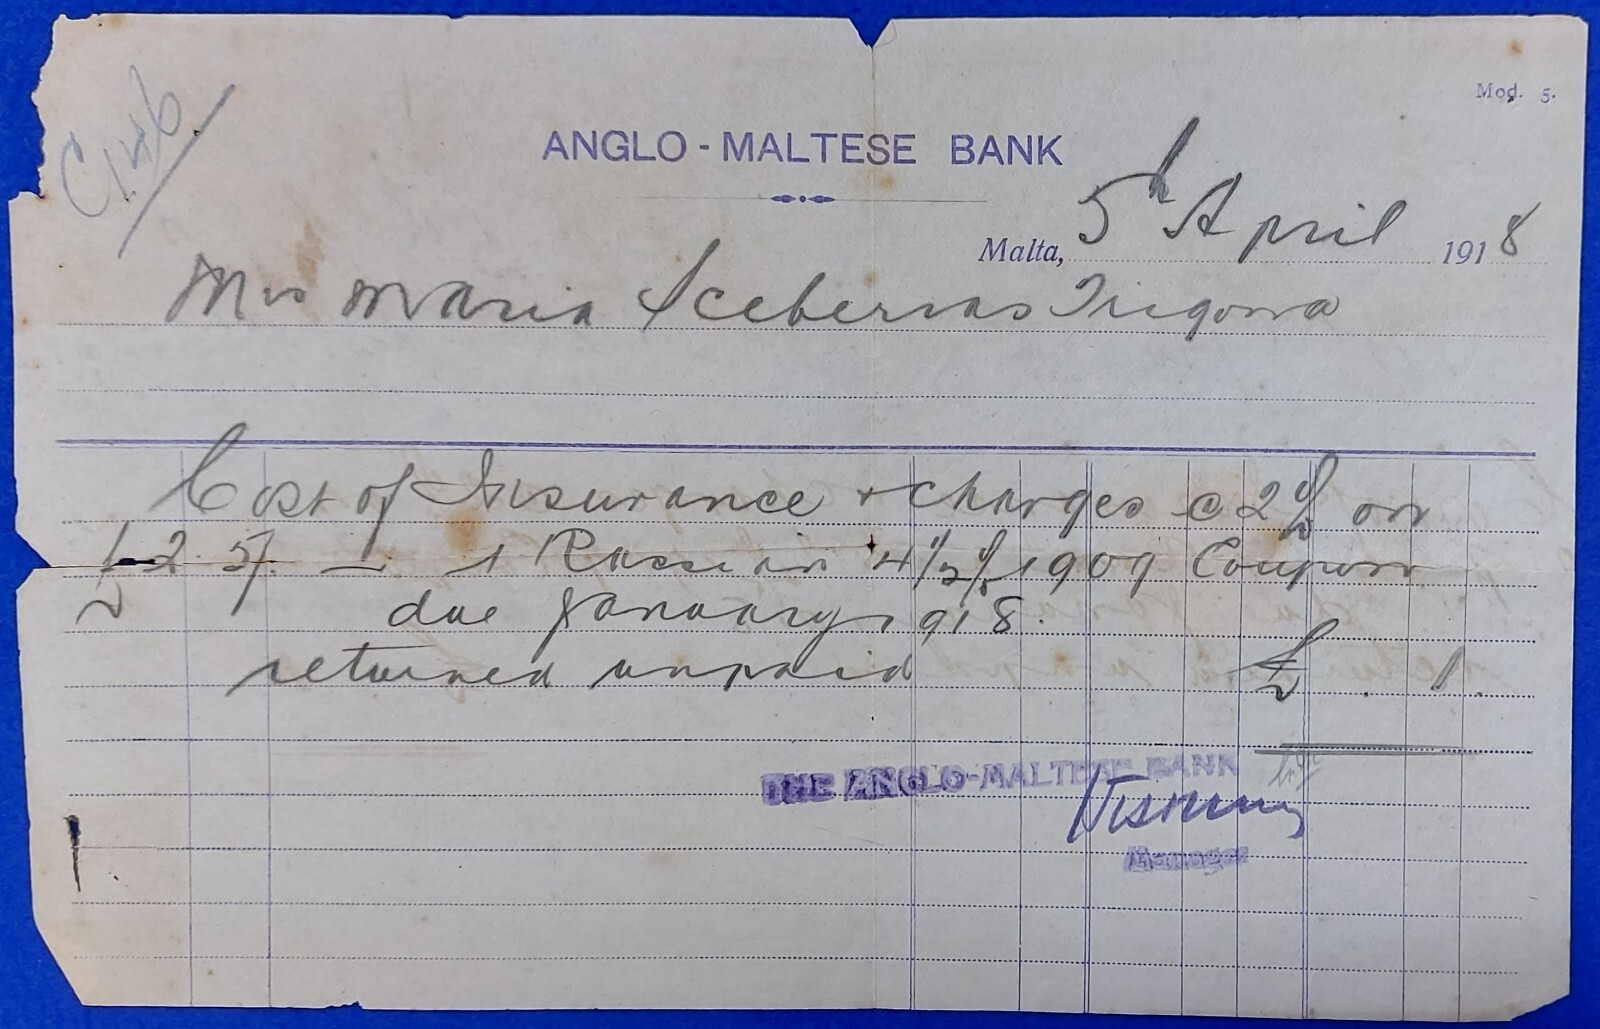 Mod. 5.
C/146
ANGLO - MALTESE BANK
Malta, 5th April 1918
Mrs Maria Sceberras Trigona
Cost of Insurance & charges @ 2% on
£ 2. 5/. — 1 Russian 4 1/2 % 1909 Coupon
due January 1918.
returned unpaid £ . 1.
THE ANGLO-MALTESE BANK
Manager